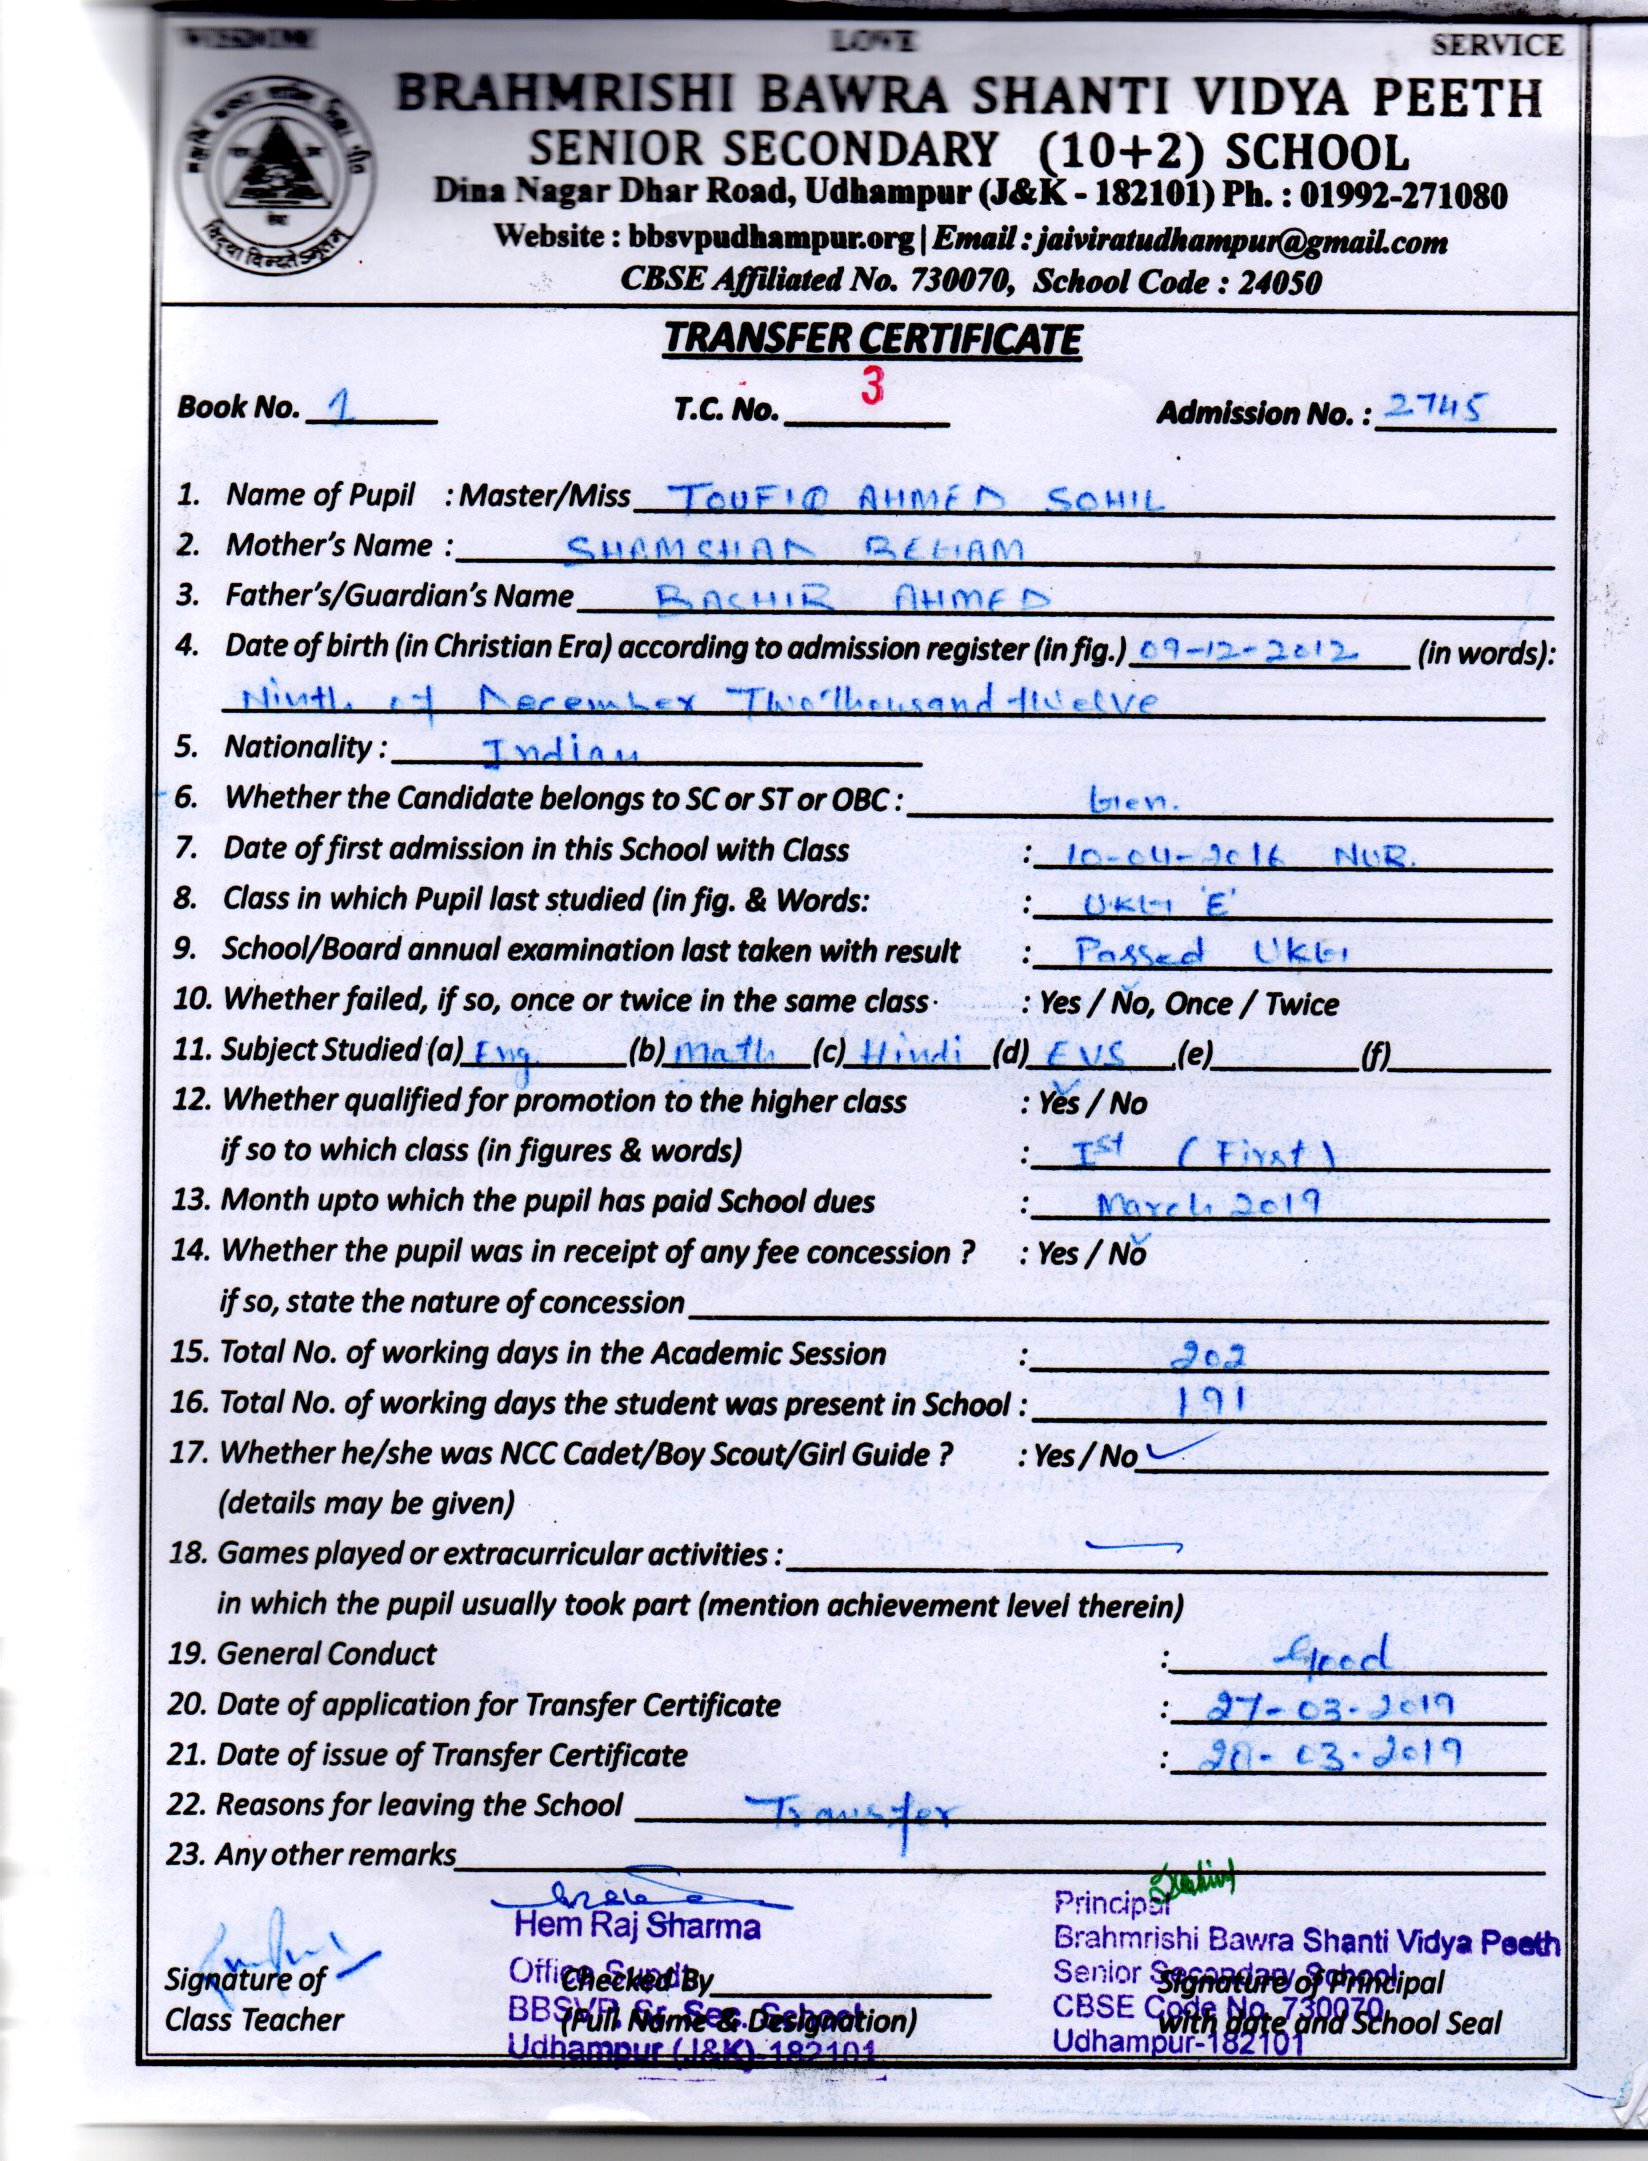 WISDOM LOVE SERVICE
BRAHMRISHI BAWRA SHANTI VIDYA PEETH
SENIOR SECONDARY (10+2) SCHOOL
Dina Nagar Dhar Road, Udhampur (J&K - 182101) Ph. : 01992-271080
Website : bbsvpudhampur.org | Email : jaiviratudhampur@gmail.com
CBSE Affiliated No. 730070, School Code : 24050
TRANSFER CERTIFICATE
Book No. 1 T.C. No. 3 Admission No. : 2745
1. Name of Pupil : Master/Miss TOUFIQ AHMED SOHIL
2. Mother's Name : SHAMSHAD BEGAM
3. Father's/Guardian's Name BASHIR AHMED
4. Date of birth (in Christian Era) according to admission register (in fig.) 09-12-2012 (in words):
Ninth of December Two Thousand twelve
5. Nationality : Indian
6. Whether the Candidate belongs to SC or ST or OBC : Gen.
7. Date of first admission in this School with Class : 10-04-2016 NUR.
8. Class in which Pupil last studied (in fig. & Words: : UKG 'E'
9. School/Board annual examination last taken with result : Passed UKG
10. Whether failed, if so, once or twice in the same class : Yes / No, Once / Twice
11. Subject Studied (a) Eng. (b) Math (c) Hindi (d) EVS (e) (f)
12. Whether qualified for promotion to the higher class : Yes / No
if so to which class (in figures & words) : Ist (First)
13. Month upto which the pupil has paid School dues : March 2019
14. Whether the pupil was in receipt of any fee concession ? : Yes / No
if so, state the nature of concession
15. Total No. of working days in the Academic Session : 202
16. Total No. of working days the student was present in School : 191
17. Whether he/she was NCC Cadet/Boy Scout/Girl Guide ? : Yes / No
(details may be given)
18. Games played or extracurricular activities :
in which the pupil usually took part (mention achievement level therein)
19. General Conduct : Good
20. Date of application for Transfer Certificate : 27-03-2019
21. Date of issue of Transfer Certificate : 28-03-2019
22. Reasons for leaving the School Transfer
23. Any other remarks
Hem Raj Sharma Principal
Brahmrishi Bawra Shanti Vidya Peeth
Office Supdt. Senior Secondary School
Signature of Checked By Signature of Principal
BBSVP Sr. Sec. School CBSE Code No. 730070
Class Teacher (Full Name & Designation) with date and School Seal
Udhampur (J&K)-182101 Udhampur-182101